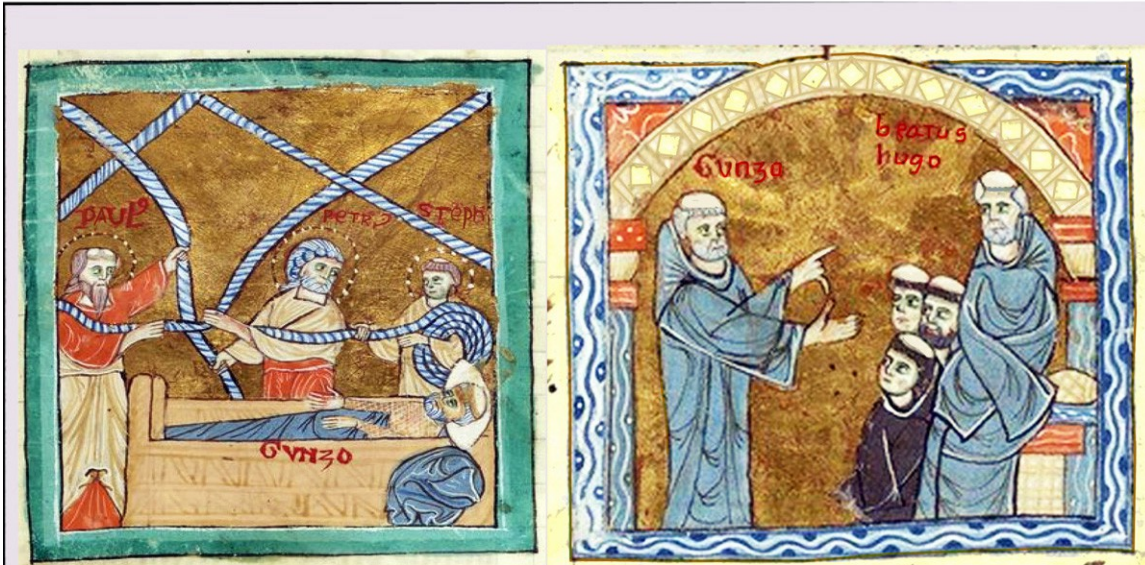 PAUL⁹
PETR⁹
STEPH
GUNZO
GUNZO
beatus
hugo